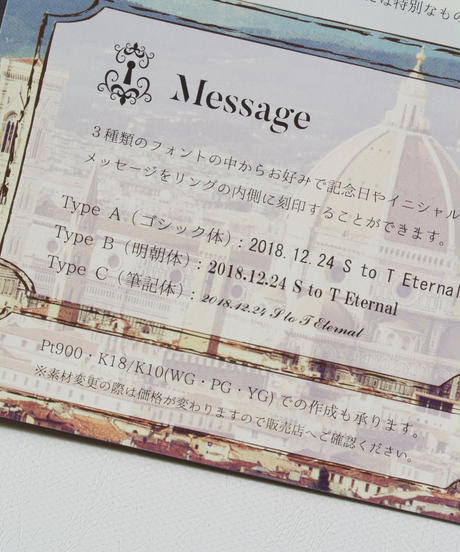 は特別なもの
Message
3種類のフォントの中からお好みで記念日やイニシャル
メッセージをリングの内側に刻印することができます。
Type A（ゴシック体）: 2018.12.24 S to T Eternal
Type B（明朝体）: 2018.12.24 S to T Eternal
Type C（筆記体）: 2018.12.24 S to T Eternal
Pt900・K18/K10(WG・PG・YG) での作成も承ります。
※素材変更の際は価格が変わりますので販売店へご確認ください。